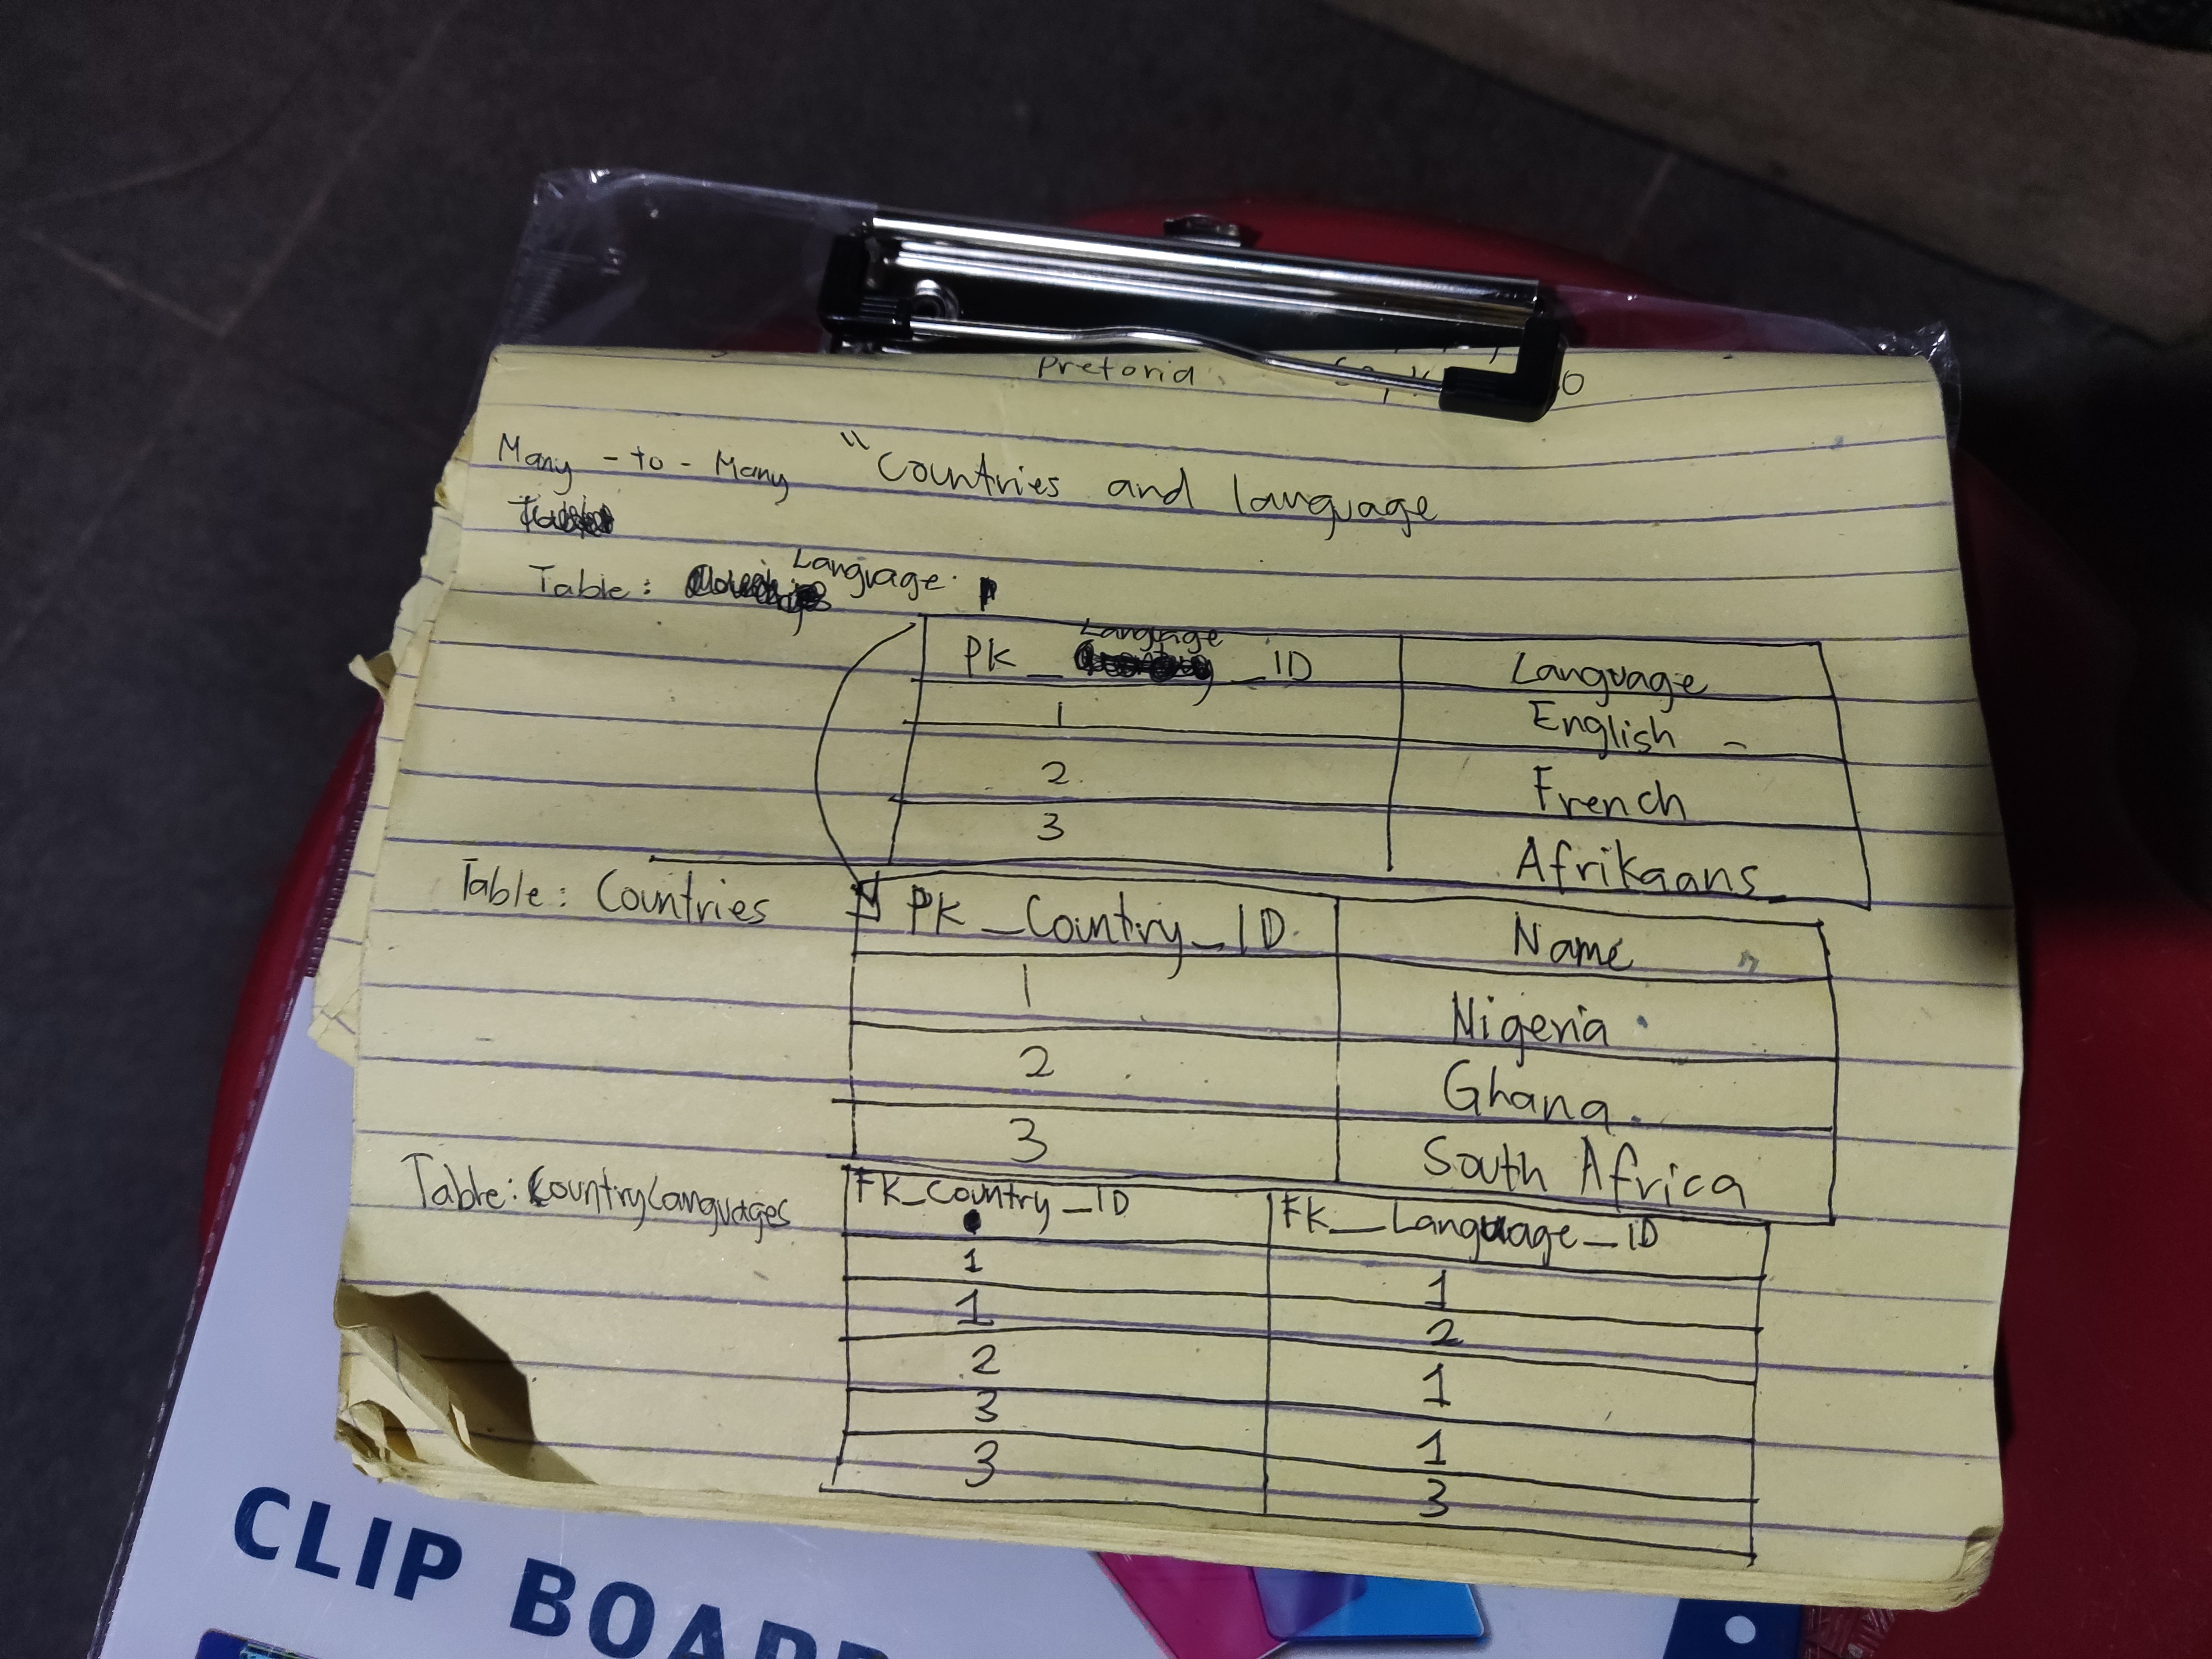 Pretoria
Many - to - Many "Countries and language
Table: Language
PK_Language_ID Language
1 English
2 French
3 Afrikaans
Table: Countries PK_Country_ID Name
1 Nigeria
2 Ghana
3 South Africa
Table: CountryLanguages FK_Country_ID FK_Language_ID
1 1
1 2
2 1
3 1
3 3
CLIP BOARD